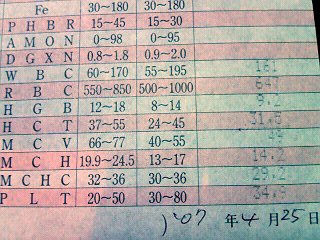 Fe 30~180 30~180
P H B R 15~45 15~30
A M O N 0~98 0~95
D G X N 0.8~1.8 0.9~2.0
W B C 60~170 55~195 161
R B C 550~850 500~1000
H G B 12~18 8~14 9.2
H C T 37~55 24~45
M C V 66~77 40~55 49
M C H 19.9~24.5 13~17 14.2
M C H C 32~36 30~36 29.2
P L T 20~50 30~80 34.9
) '07 年 4 月 25 日